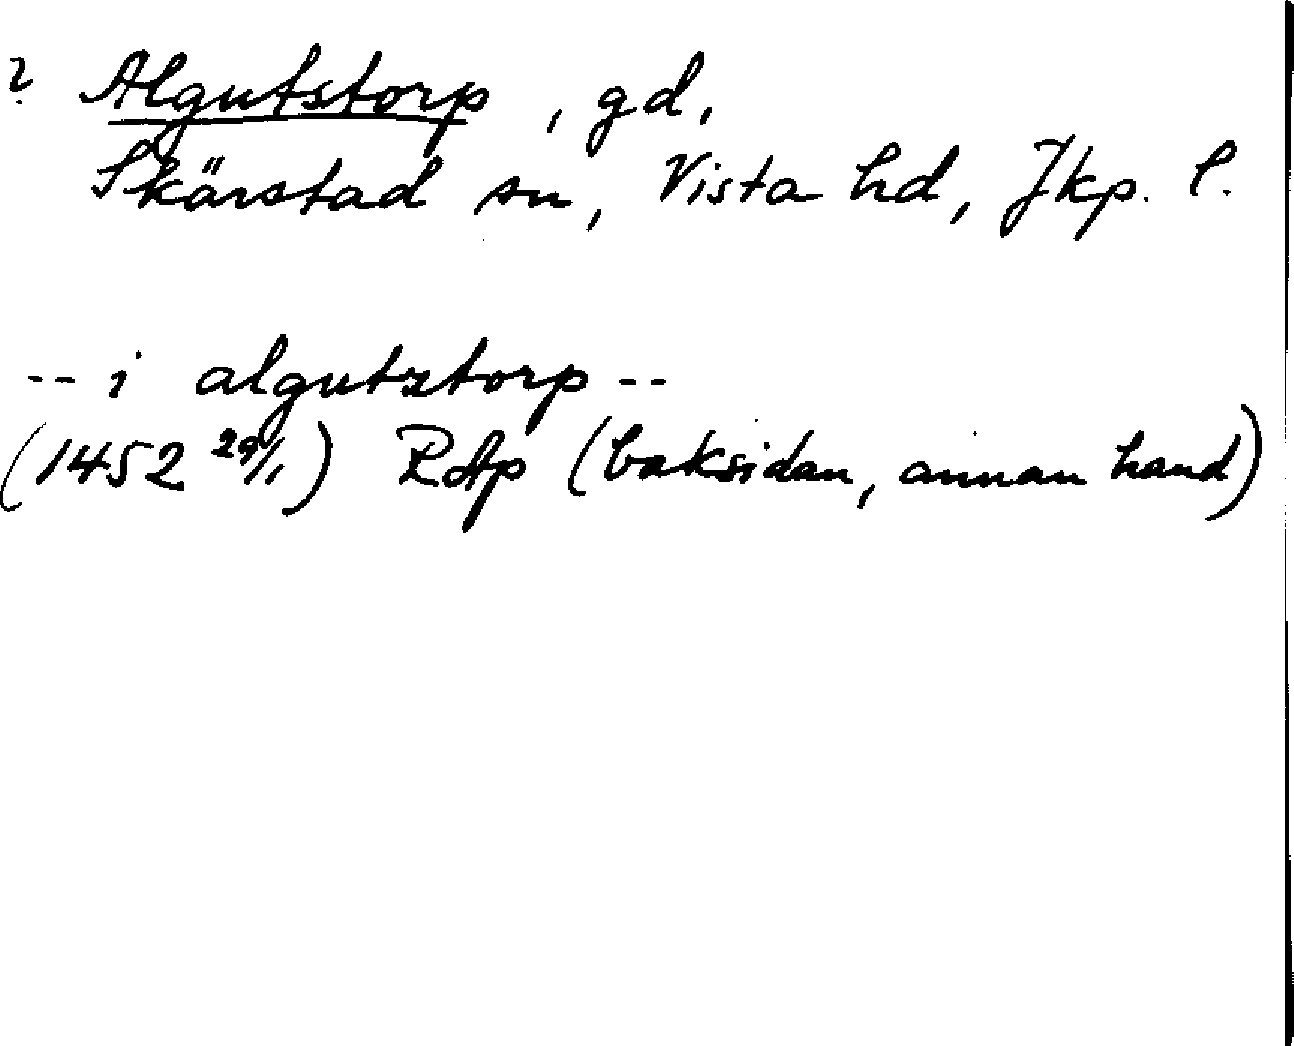 ? Algutstorp, gd,
Skärstad sn, Vista hd, Jkp. l.
-- i algutztorp --
(1452 29/1) RAp (baksidan, annan hand)